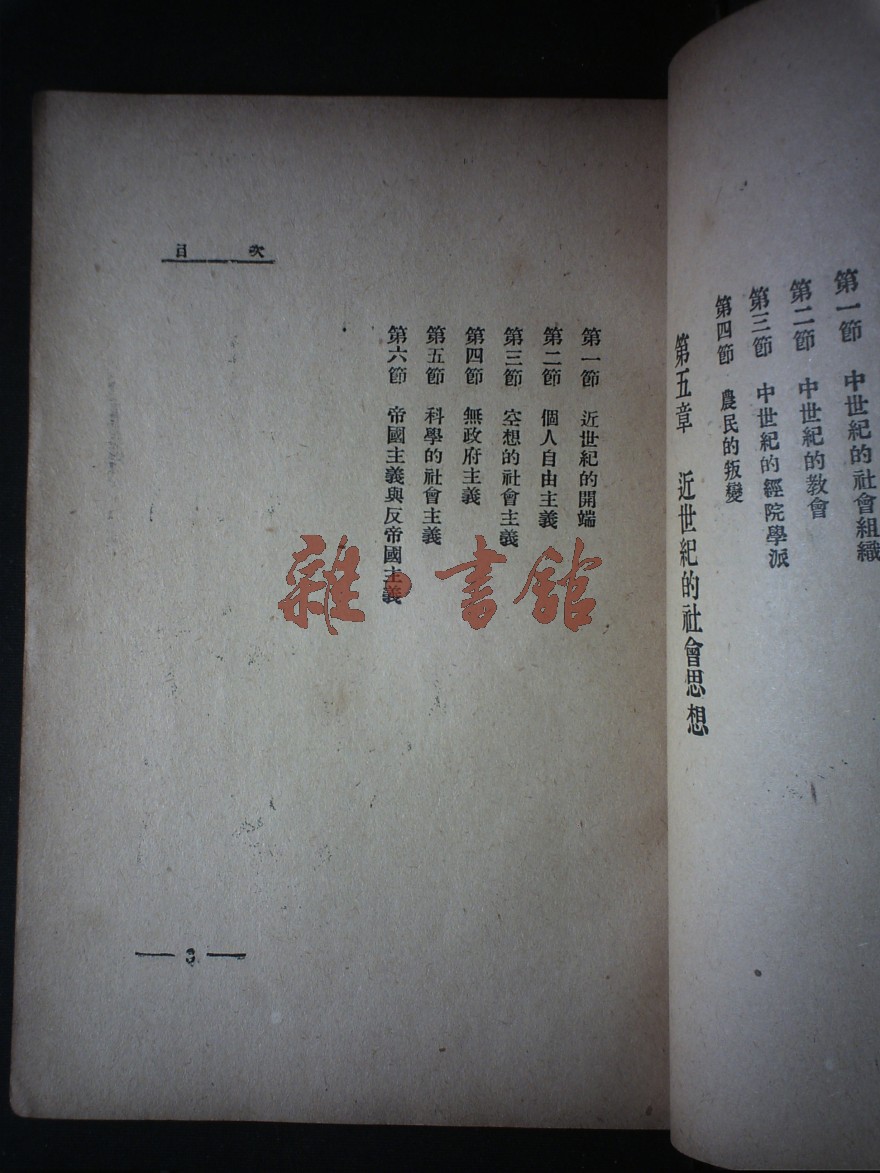 第一節 中世紀的社會組織
第二節 中世紀的教會
第三節 中世紀的經院學派
第四節 農民的叛變
第五章 近世紀的社會思想
目次
第一節 近世紀的開端
第二節 個人自由主義
第三節 空想的社會主義
第四節 無政府主義
第五節 科學的社會主義
第六節 帝國主義與反帝國主義
雜·書館
3